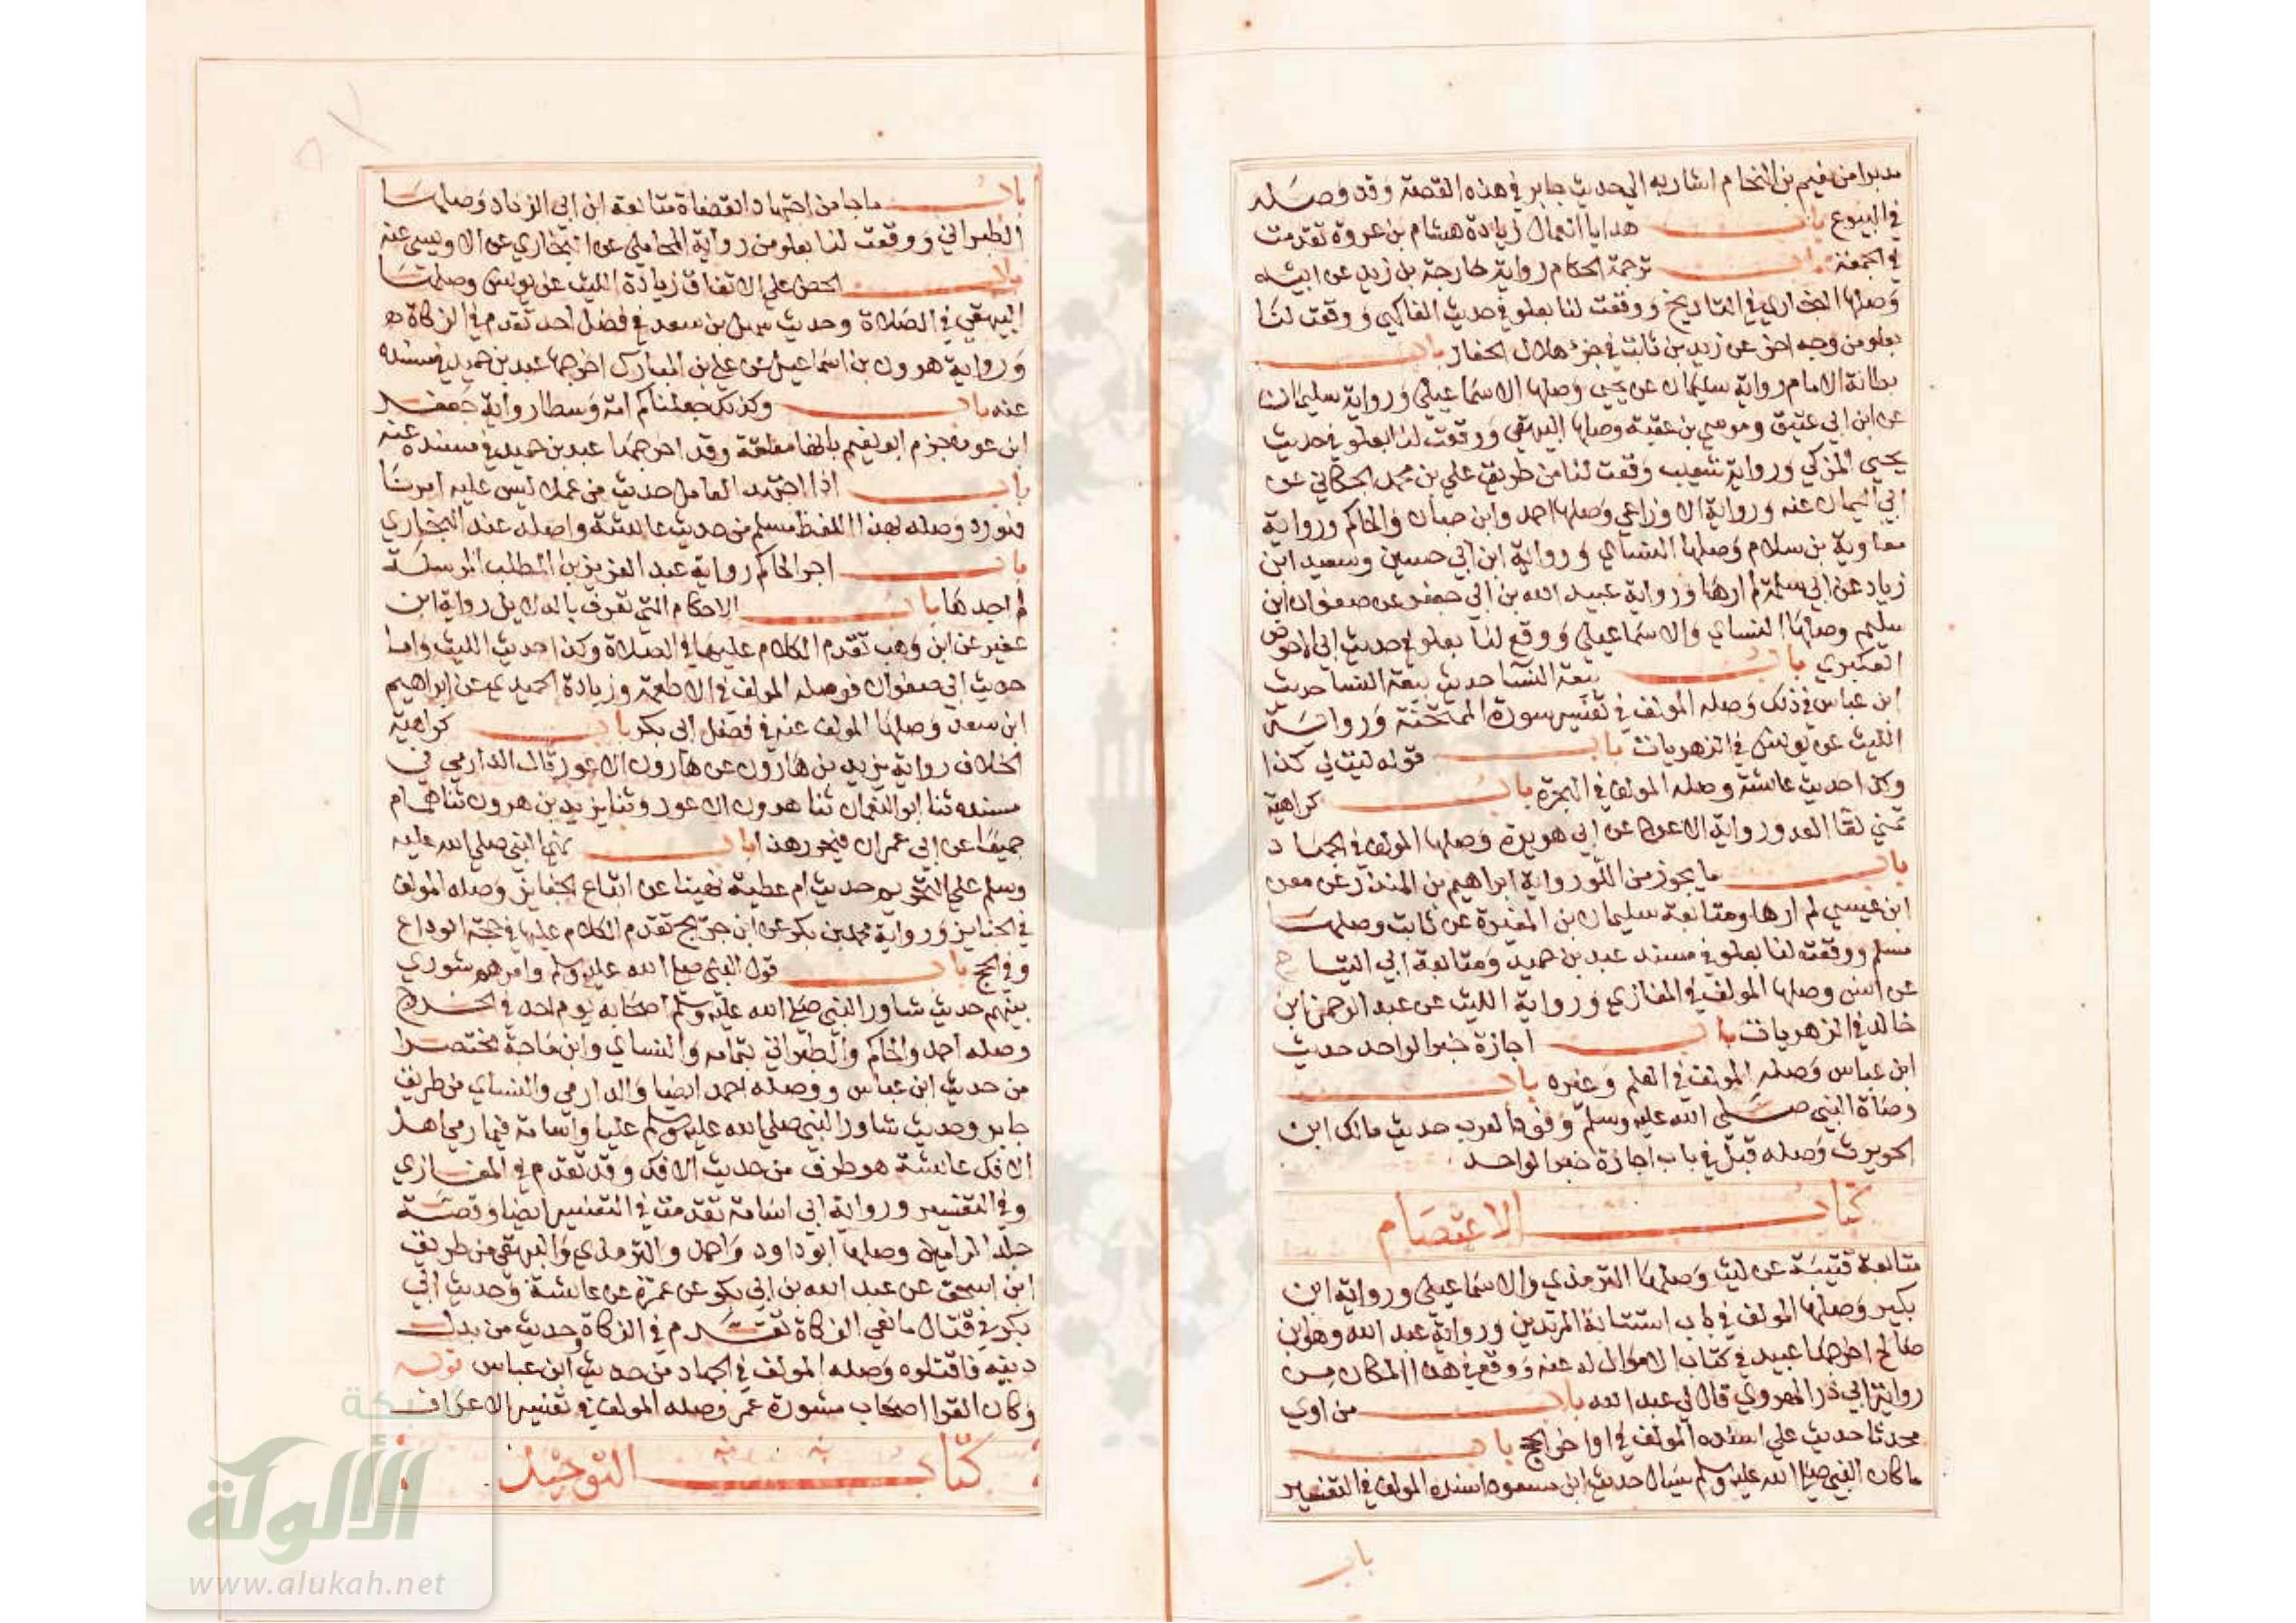 مدبرا من نعيم بن النحام اشار به الي حديث جابر في هذه القصة وقد وصله
في البيوع باب هدايا العمال زيادة هشام بن عروة تقدمت
في الجمعة باب ترجمة الحكام رواية خارجة بن زيد عن ابيه
وصلها البخاري في التاريخ ووقعت لنا بعلو في حديث الفاكهي ووقعت لنا
بعلو من وجه اخر عن زيد بن ثابت في جزء هلال الحفار باب
بطانة الامام رواية سليمان عن يحيي وصلها الاسماعيلي ورواية سليمان
عن ابن ابي عتيق وموسي بن عقبة وصلها البيهقي ووقعت لنا بعلو في حديث
يحيي المزكي ورواية شعيب وقعت لنا من طريق علي بن محمد الجكاني عن
ابي اليمان عنه ورواية الاوزاعي وصلها احمد وابن حبان والحاكم ورواية
معاوية بن سلام وصلها النساي ورواية ابن ابي حسين وسعيد ابن
زياد عن ابي سلمة لم ارها ورواية عبيد الله بن ابي جعفر عن صفوان ابن
سليم وصلها النساي والاسماعيلي ووقع لنا بعلو في حديث ابي الاحوص
العكبري باب بيعة النسا حديث بيعة النسا حديث
ابن عباس في ذلك وصله المولف في تفسير سورة الممتحنة ورواية
الليث عن يونس في الزهريات باب قوله ليت لي كذا
وكذا حديث عائشة وصله المولف في الهجرة باب كراهية
تمني لقا العدو رواية الاعرج عن ابي هريرة وصلها المولف في الجهاد
باب ما يجوز من اللو رواية ابراهيم بن المنذر عن معن
ابن عيسي لم ارها ومتابعة سليمان بن المغيرة عن ثابت وصلها
مسلم ووقعت لنا بعلو في مسند عبد بن حميد ومتابعة ابي التيا ح
عن انس وصلها المولف في المغازي ورواية الليث عن عبد الرحمن ابن
خالد في الزهريات باب اجازة خبر الواحد حديث
ابن عباس وصله المولف في العلم وغيره باب
وصاة النبي صلي الله عليه وسلم وفود العرب حديث مالك ابن
الحويرث وصله قبل في باب اجازة خبر الواحد
كتاب الاعتصام
متابعة قتيبة عن ليث وصلها الترمذي والاسماعيلي ورواية ابن
بكير وصلها المولف في باب استتابة المرتدين ورواية عبد الله وهو ابن
صالح اخرجها عبيد في كتاب الاموال له عنه ووقع في هذا المكان من
رواية ابي ذر الهروي قال لي عبد الله باب من اوي
محدثا حديث علي اسنده المولف في اواخر الحج باب
ما كان النبي صلي الله عليه وسلم يسال حديث ابن مسعود اسنده المولف في التفسير
باب
باب ماجا من اجتهاد القضاة متابعة ابن ابي الزناد وصلها
الطبراني ووقعت لنا بعلو من رواية المحاملي عن البخاري عن الاويسي عنه
باب الحض علي الاتفاق زيادة الليث عن يونس وصلها
البيهقي في الصلاة وحديث سهل بن سعد في فضل احد تقدم في الزكاة
ورواية هرون بن اسماعيل عن علي بن المبارك اخرجها عبد بن حميد في مسنده
عنه باب وكذلك جعلناكم امة وسطا رواية جعفر
ابن عون جزم ابو نعيم بانها معلقة وقد اخرجها عبد بن حميد في مسنده عنه
باب اذا اجتهد العامل حديث من عمل ليس عليه امرنا
فهو رد وصله بهذا اللفظ مسلم من حديث عائشة واصله عند البخاري
باب اجر الحاكم رواية عبد العزيز بن المطلب المرسلة
لم اجدها باب الاحكام التي تعرف بالدلايل رواية ابن
عفير عن ابن وهب تقدم الكلام عليها في الصلاة وكذا حديث الليث واما
حديث ابي صفوان فوصله المولف في الاطعمة وزيادة الحميدي عن ابراهيم
ابن سعد وصلها المولف عنه في فضل ابي بكر باب كراهية
الخلاف رواية يزيد بن هارون عن هارون الاعور قال الدارمي في
مسنده ثنا ابو النعمان ثنا هرون الاعور وثنا يزيد بن هرون ثنا همام
جميعا عن ابي عمران فيحرر هذا باب نهي النبي صلي الله عليه
وسلم علي التحريم حديث ام عطية نهينا عن اتباع الجنايز وصله المولف
في الجنايز ورواية محمد بن بكر عن ابن جريج تقدم الكلام عليها في حجة الوداع
وفي الحج باب قول النبي صلي الله عليه وسلم وامرهم شوري
بينهم حديث شاور النبي صلي الله عليه وسلم اصحابه يوم احد في الخروج
وصله احمد والحاكم والطبراني بتمامه والنساي وابن ماجة مختصرا
من حديث ابن عباس ووصله احمد ايضا والدارمي والنساي من طريق
جابر وحديث شاور النبي صلي الله عليه وسلم عليا واسامة فيما رمي اهل
الافك عائشة هو طرف من حديث الافك وقد تقدم في المغازي
وفي التفسير ورواية ابي اسامة تقدمت في التفسير ايضا وقصة
جلد الرامين وصلها ابو داود واحمد والترمذي والبيهقي من طريق
ابن اسحق عن عبد الله بن ابي بكر عن عمرة عن عائشة وحديث ابي
بكر في قتال مانعي الزكاة تقدم في الزكاة وحديث من بدل
دينه فاقتلوه وصله المولف في الجهاد من حديث ابن عباس قوله
وكان القرا اصحاب مشورة عمر وصله المولف في تفسير الاعراف
كتاب التوحيد
شبكة
الألوكة
www.alukah.net